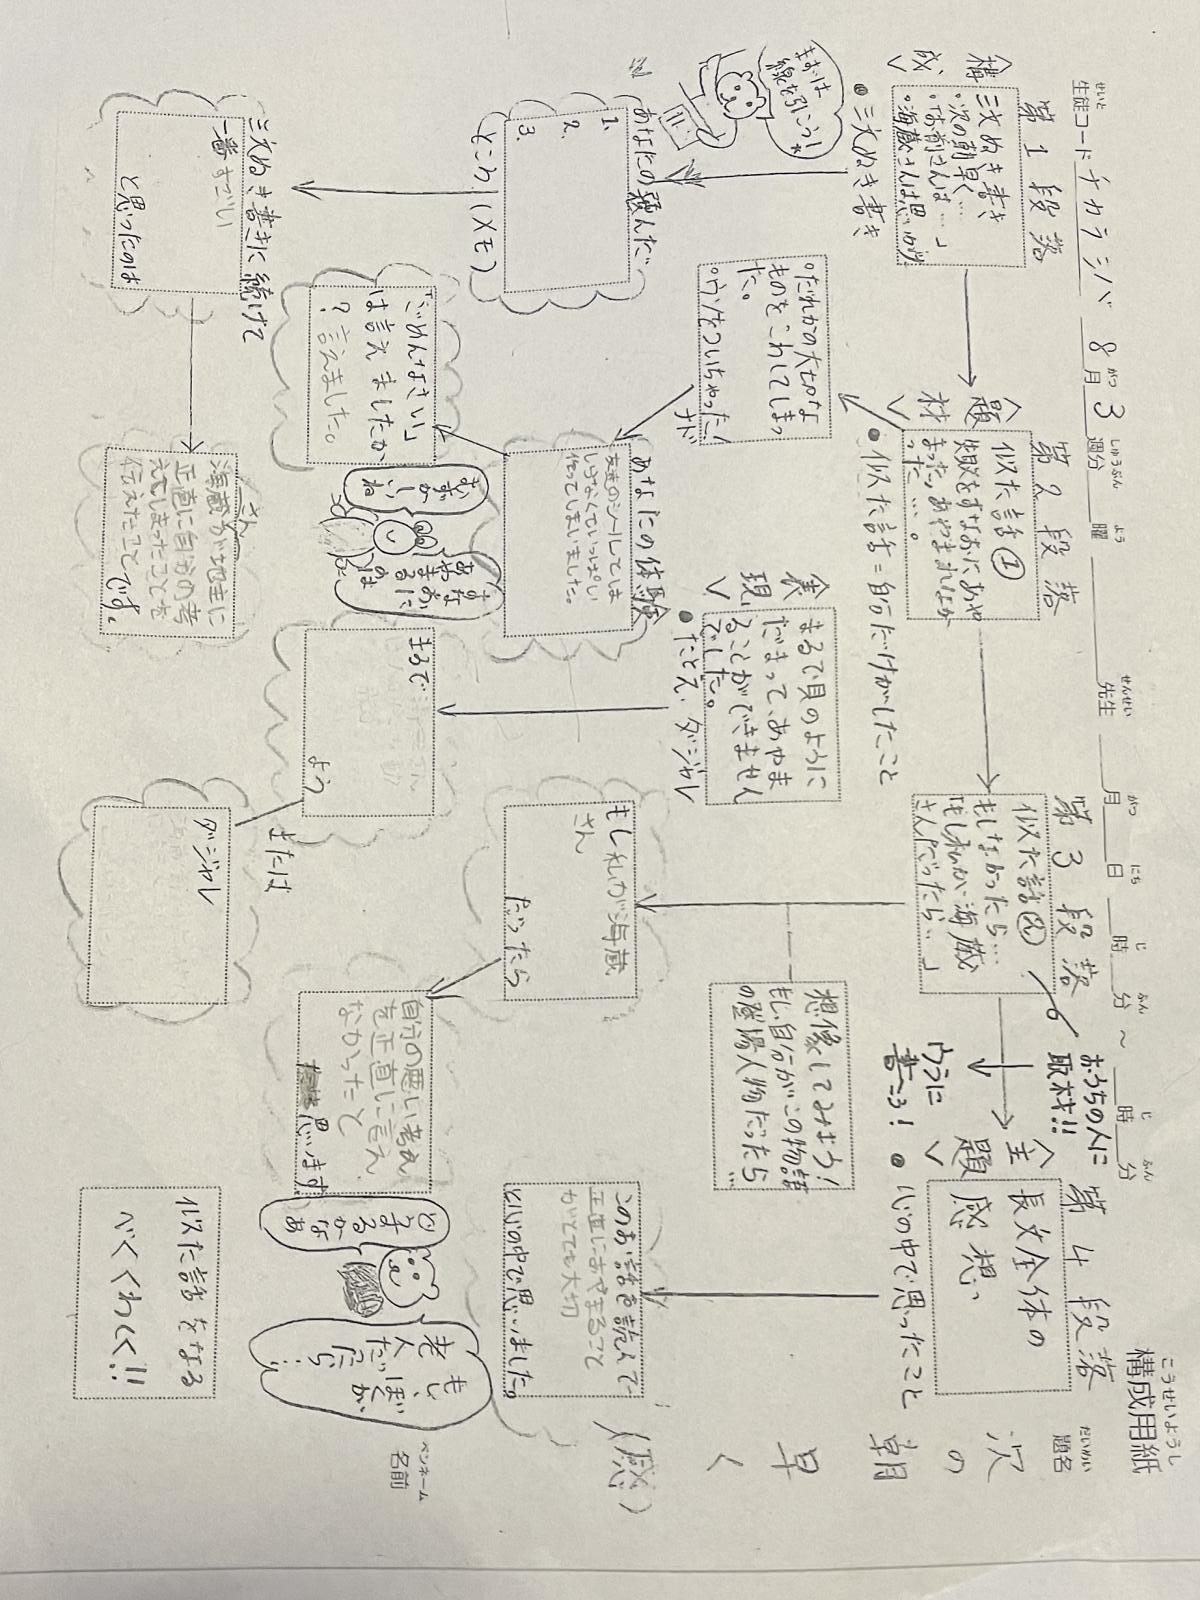 こうせいようし
構成用紙
せいと
生徒コード チカラシバ 8月 3週分 曜 先生 月 日 時 分 ～ 時 分
がつ しゅうぶん よう せんせい がつ にち じ ふん じ ふん
だいめい
題名
次の朝早く (感)
ペンネーム
名前
第1段落
<構成>
三文ぬき書き
。次の朝早く…
。「お前さんは…」
。海蔵さんは思いがけ
●三文ぬき書き
まずは
線を引こう!
あなたの選んだ
ところ (メモ)
1.
2.
3.
三文ぬき書きに続けて
一番すごい
と思ったのは
海蔵さんが地主に
正直に自分の考
えてしまったことを
伝えたことです。
第2段落
<題材>
似た話①
失敗をすなおにあや
まった、あやまれなか
った…。
●似た話=自分だけがしたこと
。だれかの大切な
ものをこわしてしまっ
た。
。ウソをついちゃった
ナド
あなたの体験
友達のシールしてしま
しらなくていっぱい
使ってしまいました。
「ごめんなさい」
は言えましたか
?言えました。
すなおに
あやまるのは
むずかしいね
<表現>
まるで貝のように
だまって、あやま
ることができません
でした。
●たとえ・ダジャレ
まるで
よう
または
ダジャレ
第3段落
おうちの人に
取材!!
似た話②
もしなかったら…
「もしわたしが海蔵
さんだったら…」
ウラに
書こう!
想像してみよう!
もし自分がこの物語
の登場人物だったら…
もし私が海蔵
さん
だったら
自分の悪い考え
を正直に言え
なかったと
思います。
第4段落
<主題>
長文全体の
感想
●心の中で思ったこと
このお話を読んで
正直にあやまること
がとても大切
と心の中で思いました。
どうする
かなぁ
もし、
ぼくが
老人だったら…
似た話をなる
べくくわしく!!